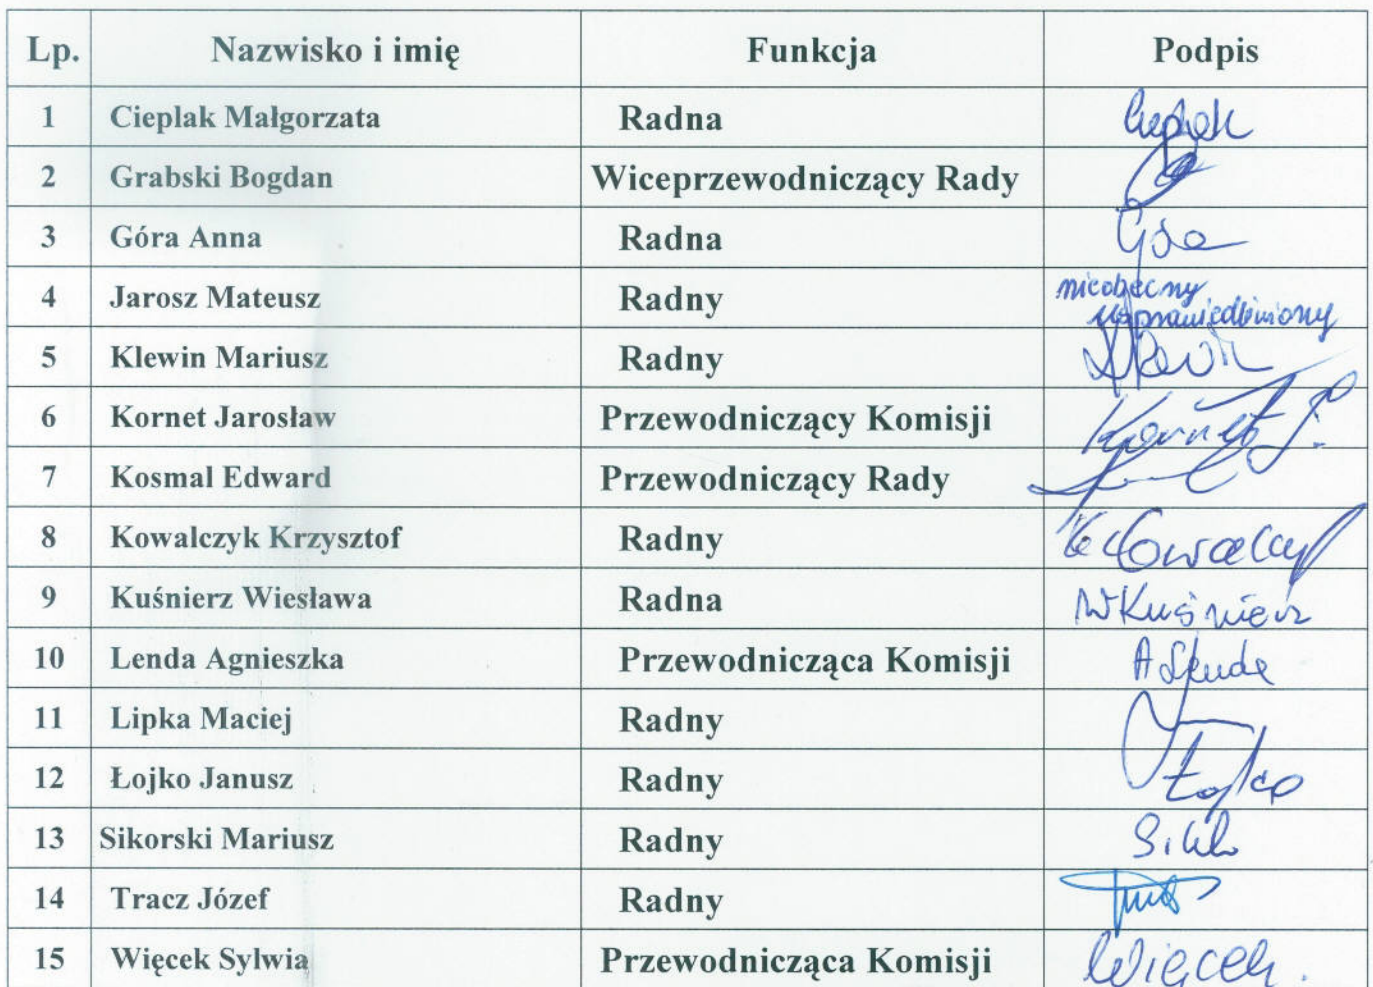 Lp. Nazwisko i imię Funkcja Podpis
1 Cieplak Małgorzata Radna
2 Grabski Bogdan Wiceprzewodniczący Rady
3 Góra Anna Radna Góra
4 Jarosz Mateusz Radny nieobecny
usprawiedliwiony
5 Klewin Mariusz Radny
6 Kornet Jarosław Przewodniczący Komisji Kornet J.
7 Kosmal Edward Przewodniczący Rady
8 Kowalczyk Krzysztof Radny
9 Kuśnierz Wiesława Radna W Kuśnierz
10 Lenda Agnieszka Przewodnicząca Komisji A Lenda
11 Lipka Maciej Radny
12 Łojko Janusz Radny Łojko
13 Sikorski Mariusz Radny
14 Tracz Józef Radny
15 Więcek Sylwia Przewodnicząca Komisji Więcek.